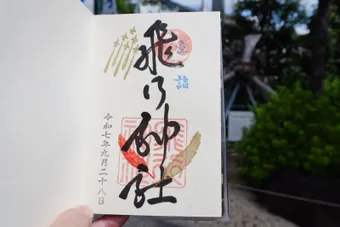 詣
飛行神社
令和七年九月二十八日